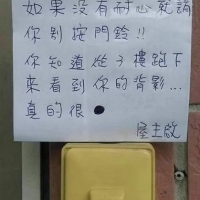 如果没有耐心就請
你別按門鈴!!
你知道從3樓跑下
來看到你的背影...
真的很●
屋主啟